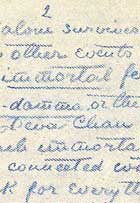 2
alone survives
other events
immortal fe
-damma, or the
Chan
immorta
connected wi
k for everyth